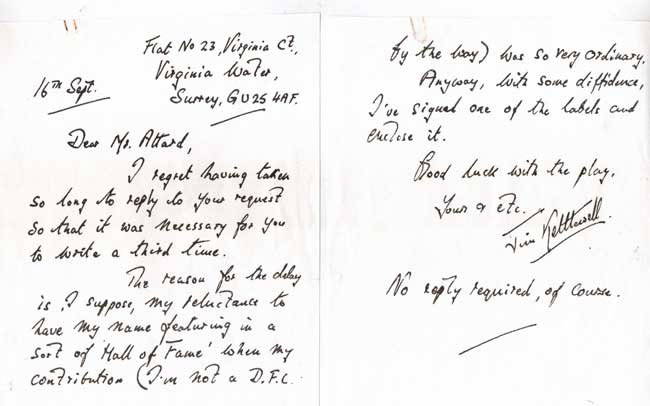 Flat No 23, Virginia Ct.,
Virginia Water,
16TH Sept.
Surrey, GU25 4AF.
Dear Mr. Attard,
I regret having taken
so long to reply to your request
so that it was necessary for you
to write a third time.
The reason for the delay
is, I suppose, my reluctance to
have my name featuring in a
sort of 'Hall of Fame' when my
contribution (I'm not a D.F.C.
by the way) was so very ordinary.
Anyway, with some diffidence,
I've signed one of the labels and
enclose it.
Good luck with the play.
Yours & etc.
Jim Kettlewell
No reply required, of course.